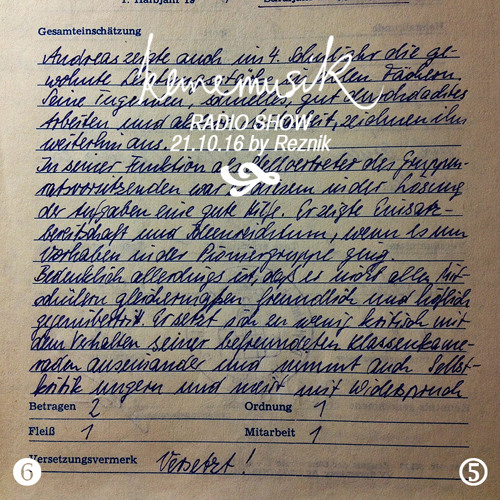 1. Halbjahr 19
Gesamteinschätzung
Andreas zeigte auch im 4. Schuljahr die ge-
wohnte in allen Fächern.
Seine Tugenden, schnelles, gut durchdachtes
Arbeiten und zeichnen ihn
weiterhin aus.
In seiner Funktion als Stellvertreter des Gruppen-
ratsvorsitzenden war Andreas in der Lösung
der Aufgaben eine gute Hilfe. Er zeigte Einsatz-
bereitschaft und Ideenreichtum, wenn es um
Vorhaben in der Pioniergruppe ging.
Bedenklich allerdings ist, daß er nicht allen Mit-
schülern gleichermaßen freundlich und höflich
gegenübertritt. Er setzt sich zu wenig kritisch mit
dem Verhalten seiner befreundeten Klassenkame-
raden auseinander und nimmt auch Selbst-
kritik ungern und meist mit Widerspruch
keinemusik
RADIO SHOW
21.10.16 by Reznik
Betragen 2 Ordnung 1
Fleiß 1 Mitarbeit 1
Versetzungsvermerk Versetzt!
6 5